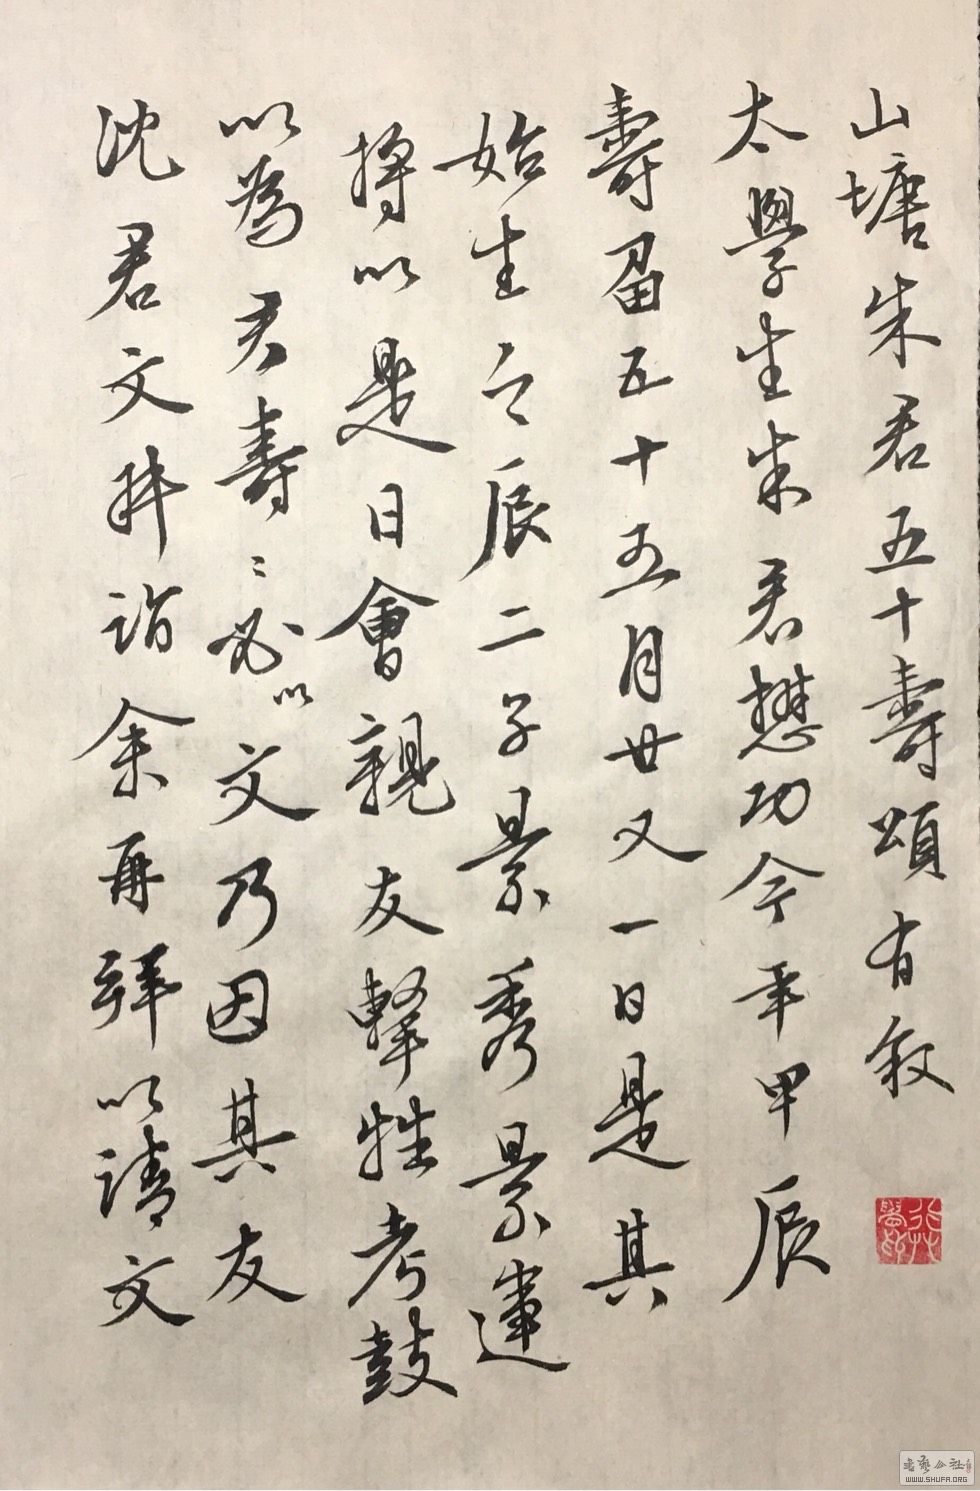 山塘朱君五十壽頌有叙
太學生朱君懋功今年甲辰
壽畱五十五月廿又一日是其
始生之辰二子景秀景運
將以是日會親友擊牲考鼓
以為君壽〻必以文乃因其友
沈君文拜詣余再拜以請文
書藝公社
WWW.SHUFA.ORG